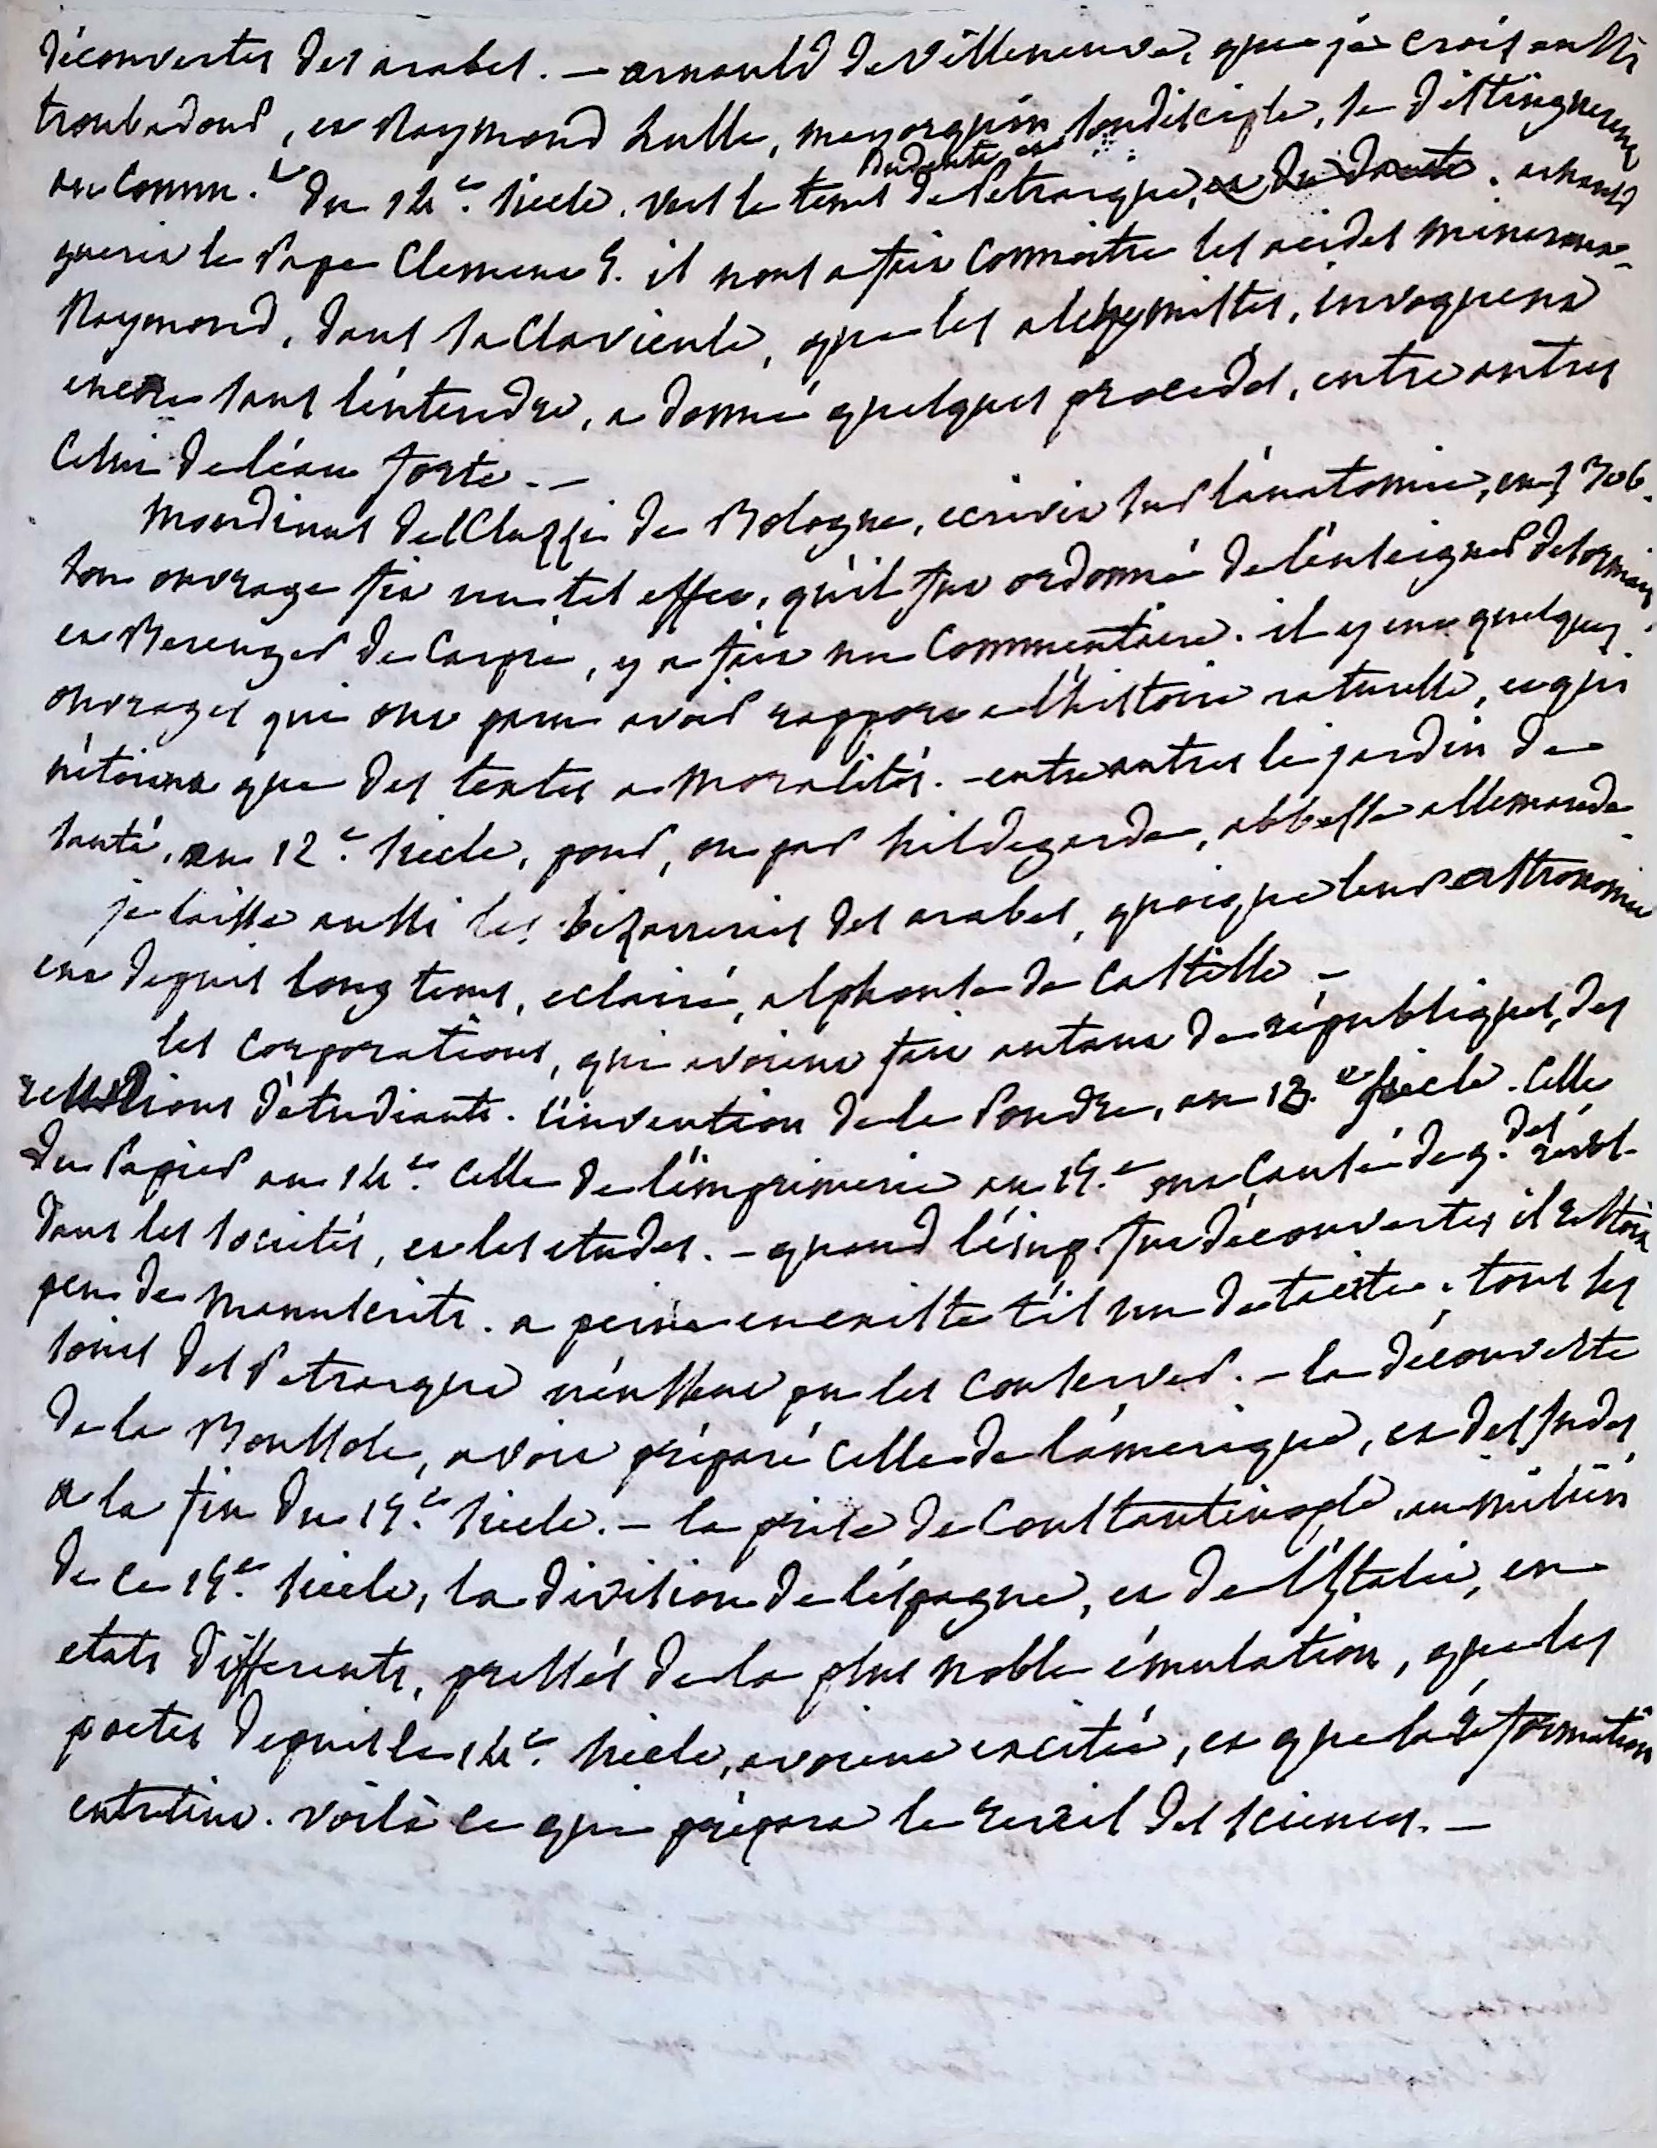 découvertes des arabes. — arnould de Villeneuve, que je crois aussi
troubadour, et Raymond Lulle, mayorquin, son disciple, se distinguerent
au comm.t du 14e. siecle. vers le tems du dante et de Petrarque, et du dante. arnould
guerit le Pape Clement 5. il nous a fait connoitre les acides mineraux -
Raymond, dans sa Clavicule, que les alchymistes, invoquent
encore sans l'entendre, a donné quelques procedés, entre autres
celui de l'eau forte. —
mondinus del Cluzzi de Bologne, ecrivit sur l'anatomie, en 1306.
son ouvrage fit un tel effet, qu'il fut ordonné de l'enseigner desormais
et Berenger de Carpi, y a fait un Commentaire. il y eut quelques
ouvrages qui ont paru avoir rapport a l'histoire naturelle, et qui
n'étoient que des textes a moralités. - entre autres le jardin de
santé, au 12e. siecle, pour, ou par hildegarde, abbesse allemande.
je laisse aussi les bizarreries des arabes, quoique leur astronomie
eut depuis long tems, eclairé, alphonse de Castille —
les corporations, qui avoient fait autant de républiques, des
d'étudiants. l'invention de la Poudre, au 13.e siecle. Celle
du Papier au 14e. celle de l'imprimerie au 15.e ont causé de g.des révol.
dans les sociétés, et les etudes. - quand l'imp. fut découverte, il restoit
peu de manuscrits. a peine en existe t'il un de tacite. tous les
soins des Petrarque n'eussent pu les conserver. - la découverte
de la Boussole, avoit préparé celle de l'amerique, et des Indes,
a la fin du 15e. siecle. - la prise de Constantinople, au milieu
de ce 15e. siecle, la division de l'espagne, et de l'Italie, en
etats differents, pressés de la plus noble émulation, que les
poetes depuis le 14e. siecle, avoient excitée, et que la réformation
entretint. voilà ce qui prépara le reveil des sciences. —